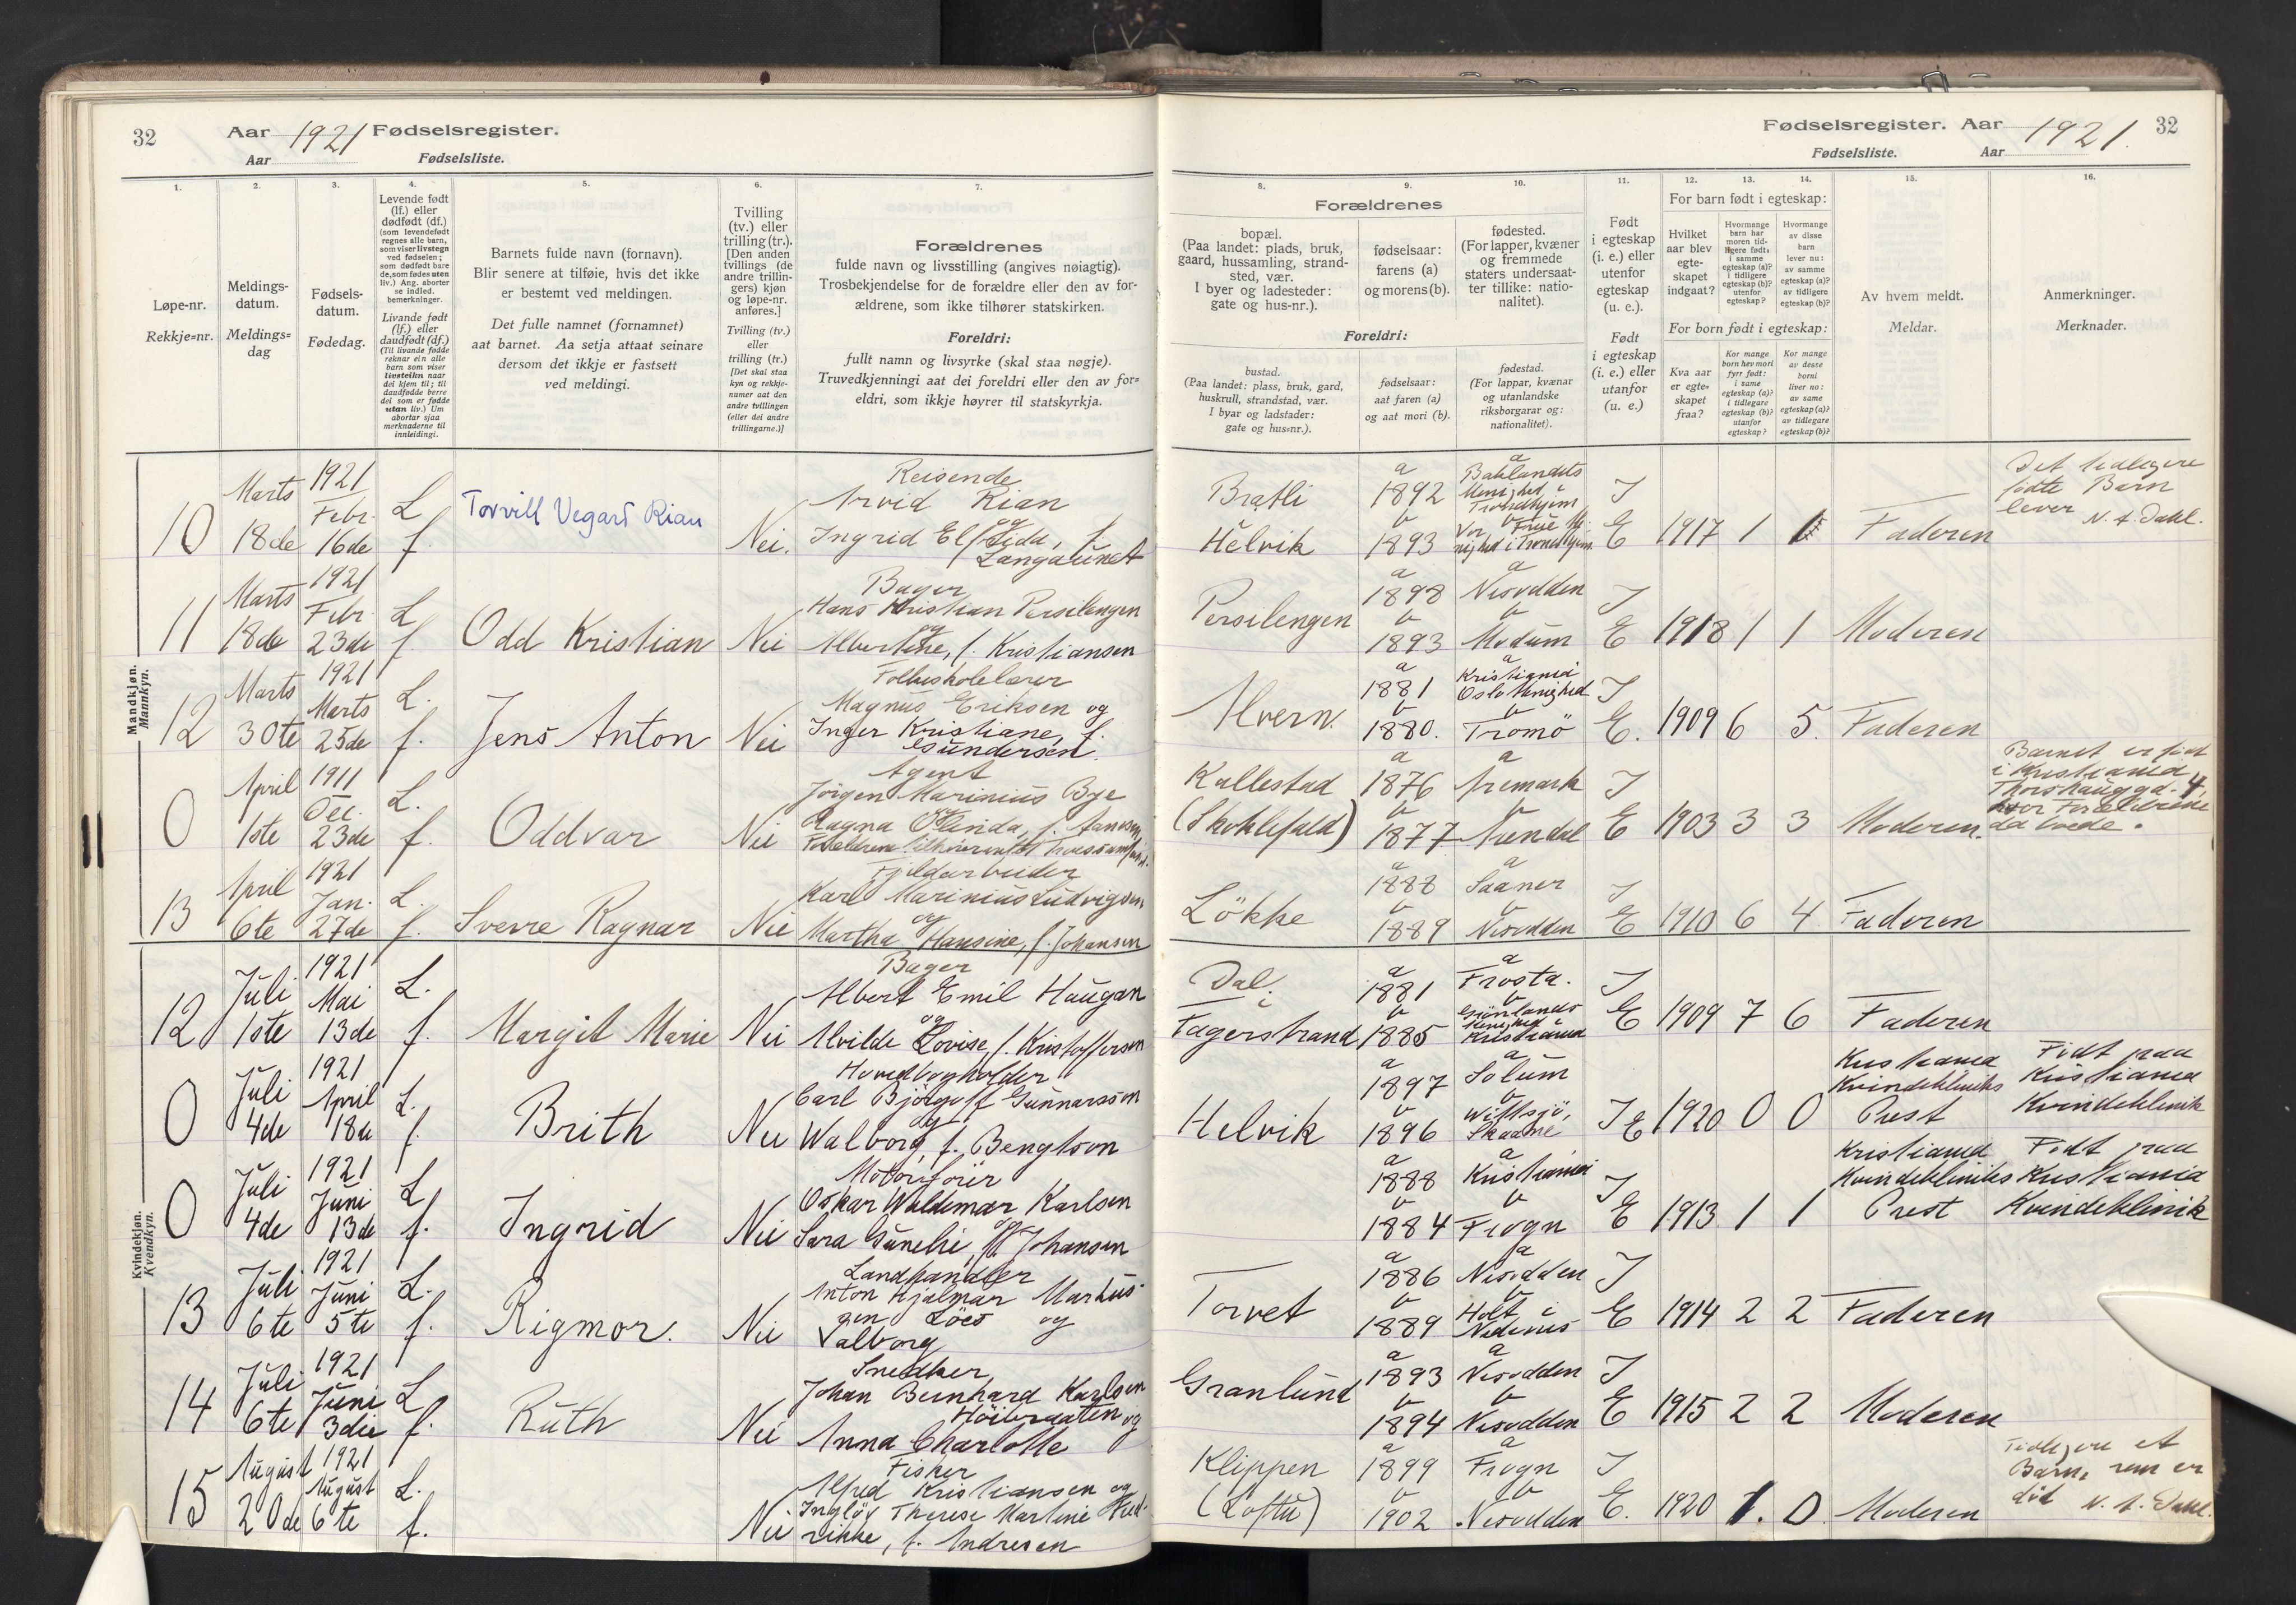 32
Aar 1921 Fødselsregister.
Aar
Fødselsliste.
1.
2.
3.
4.
5.
6.
7.
Løpe-nr.
Rekkje-nr.
Meldings-
datum.
Meldings-
dag
Fødsels-
datum.
Fødedag.
Levende født
(lf.) eller
dødfødt (df.)
(som levendefødt
regnes alle barn,
som viser livstegn
ved fødselen;
som dødfødt bare
de, som fødes uten
liv.) Ang. aborter
se indled.
bemerkninger.
Livande født
(lf.) eller
daudfødt (df.)
(Til livande fødde
reknar ein alle
barn som viser
livsteikn naar
dei kjem til; til
daudfødde berre
dei som er fødde
utan liv.) Um
abortar sjaa
merknaderne til
innleidingi.
Barnets fulde navn (fornavn).
Blir senere at tilføie, hvis det ikke
er bestemt ved meldingen.
Det fulle namnet (fornamnet)
aat barnet. Aa setja attaat seinare
dersom det ikkje er fastsett
ved meldingi.
Tvilling
(tv.) eller
trilling (tr.).
[Den anden
tvillings (de
andre trillin-
gers) kjøn
og løpe-nr.
anføres.]
Tvilling (tv.)
eller
trilling (tr.)
[Det skal staa
kyn og rekkje-
numer aat den
andre tvillingen
(eller dei andre
trillingarne.)]
Forældrenes
fulde navn og livsstilling (angives nøiagtig).
Trosbekjendelse for de forældre eller den av for-
ældrene, som ikke tilhører statskirken.
Foreldri:
fullt namn og livsyrke (skal staa nøgje).
Truvedkjenningi aat dei foreldri eller den av for-
eldri, som ikkje høyrer til statskyrkja.
Mandkjøn.
Mannkyn.
10
Marts
18de
1921
Febr.
16de
L
f.
Torvill Vegard Rian
Nei.
Reisende
Arvid Rian
og
Ingrid Elfrida, f.
Langaunet
11
Marts
18de
1921
Febr.
23de
L
f.
Odd Kristian
Nei
Bager
Hans Kristian Persilengen
og
Albertine, f. Kristiansen
12
Marts
30te
1921
Marts
25de
L.
f.
Jens Anton
Nei
Folkeskolelærer
Magnus Eriksen og
Inger Kristiane, f.
Gundersen.
0
April
1ste
1911
Dec.
23de
L.
f.
Oddvar
Nei
Agent
Jørgen Marinius Bye
og
Ragna Olinda, f. Hansen
13
April
6te
1921
Jan.
27de
L.
f.
Sverre Ragnar
Nei
Fjeldarbeider
Karl Marinius Ludvigsen
og
Martha Hansine, f. Johansen
Kvindekjøn.
Kvendkyn.
12
Juli
1ste
1921
Mai
13de
L.
f.
Margit Marie
Nei
Bager
Albert Emil Haugan
og
Alvilde Lovise, f. Kristoffersen
0
Juli
4de
1921
April
18de
L.
f.
Brith
Nei
Hovedbogholder
Carl Björgulf Gunnarsson
og
Walborg, f. Bengtson
0
Juli
4de
1921
Juni
13de
L
f.
Ingrid
Nei
Motorfører
Oskar Waldemar Karlsen
og
Sara Gunelie, f. Johansen
13
Juli
6te
1921
Juni
5te
L.
f.
Rigmor.
Nei
Landhandler
Anton Hjalmar Markus-
sen Löes og
Valborg
14
Juli
6te
1921
Juni
3die
L
f.
Ruth
Nei
Snedker
Johan Bernhard Karlsen
Höibraaten og
Anna Charlotte
15
August
20de
1921
August
6te
L.
f.
Nei
Fisker
Alfred Kristiansen og
Ingløv Therese Martine Hed-
rikke, f. Andresen
Fødselsregister. Aar 1921. 32
Fødselsliste. Aar
8.
9.
10.
11.
12.
13.
14.
15.
16.
Forældrenes
bopæl.
(Paa landet: plads, bruk,
gaard, hussamling, strand-
sted, vær.
I byer og ladesteder:
gate og hus-nr.).
fødselsaar:
farens (a)
og morens (b).
fødested.
(For lapper, kvæner
og fremmede
staters undersaat-
ter tillike: natio-
nalitet).
Foreldri:
bustad.
(Paa landet: plass, bruk, gard,
huskrull, strandstad, vær.
I byar og ladstader:
gate og hus-nr.).
fødselsaar:
aat faren (a)
og aat mori (b).
fødestad.
(For lappar, kvænar
og utanlandske
riksborgarar og:
nationalitet).
Født
i egteskap
(i. e.) eller
utenfor
egteskap
(u. e.).
Født
i egteskap
(i. e.) eller
utanfor
(u. e.)
For barn født i egteskap:
Hvilket
aar blev
egte-
skapet
indgaat?
Hvormange
barn har
moren tid-
ligere født,
i samme
egteskap (a)?
i tidligere
egteskap (b)?
utenfor
egteskap?
Hvormange
av disse
barn
lever nu:
av samme
egteskap (a)?
av tidligere
egteskap (b)?
For born født i egteskap:
Kva aar
er egte-
skapet
fraa?
Kor mange
born hev mori
fyrr født:
i same
egteskap (a)?
i tidlegare
egteskap (b)?
utanfor
egteskap?
Kor mange
av desse
borni
liver no:
av same
egteskap (a)?
av tidlegare
egteskap (b)?
Av hvem meldt.
Meldar.
Anmerkninger.
Merknader.
Bratli
Helvik
a
1892
b
1893
a
Baklandets
Menighed i
Trondhjem
b
Vor Frue Me-
nighed i Trondhjem
I
E
1917
1
1
Faderen
Det tidligere
fødte Barn
lever
N. A. Dahl.
Persilengen
a
1898
b
1893
a
Nesodden
b
Modum
I
E
1918
1
1
Moderen
Alvern.
a
1881
b
1880.
a
Kristiania
Oslo Menighed
b
Tromö
I
E.
1909
6
5.
Faderen
Kallestad
(Skoklefald)
a
1876
b
1877
a
Aremark
b
Arendal
I
E
1903
3
3
Moderen.
Barnet er født
i Kristiania
Thorshauggd. 4,
hvor Forældrene
da boede.
Lökke
a
1888
b
1889
a
Saaner
b
Nesodden
I
E
1910
6
4
Faderen
Dal
i
Fagerstrand
a
1881
b
1885
a
Frosta.
b
Grönlands
Menighed i
Kristiania
I
E
1909
7
6
Faderen
Helvik
a
1897
b
1896
a
Solum
b
Wittsjö,
Skaane
I E
1920
0
0
Kristiania
Kvindekliniks
Prest
Født paa
Kristiania
Kvindeklinik
a
1888
b
1884
a
Kristiania
b
Frogn
I
E
1913
1
1
Kristiania
Kvindekliniks
Prest
Født paa
Kristiania
Kvindeklinik
Torvet
a
1886
b
1889
a
Nesodden
b
Holt i
Nedenes
I
E
1914
2
2
Faderen
Granlund
a
1893
b
1894
a
Nesodden
b
Nesodden
I
E
1915
2
2
Moderen
Klippen
(Loftu)
a
1899
b
1902
a
Frogn
b
Nesodden
I
E.
1920
1.
0
Moderen
Tidligere et
Barn, som er
død N. A. Dahl.